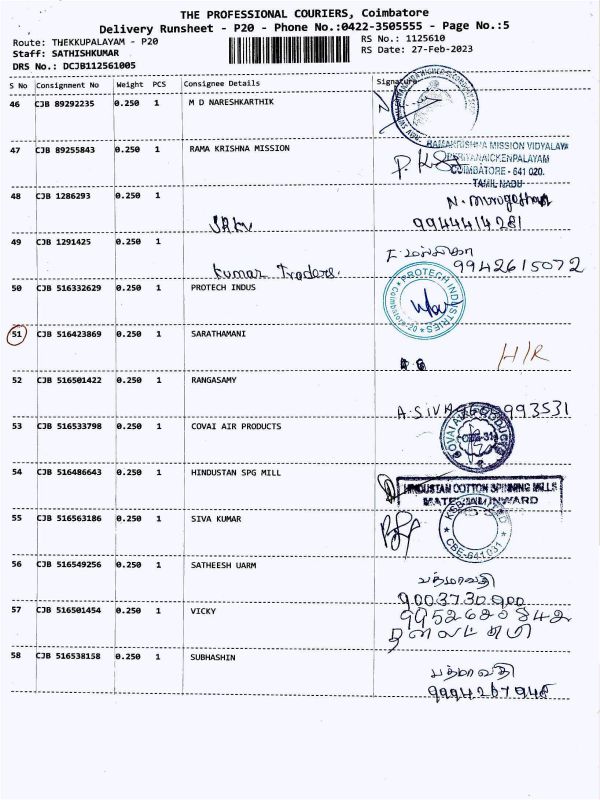 THE PROFESSIONAL COURIERS, Coimbatore
Delivery Runsheet - P20 - Phone No.:0422-3505555 - Page No.:5
Route: THEKKUPALAYAM - P20
RS No.: 1125610
Staff: SATHISHKUMAR
RS Date: 27-Feb-2023
DRS No.: DCJB112561005
S No Consignment No Weight PCS Consignee Details Signature
46 CJB 89292235 0.250 1 M D NARESHKARTHIK
47 CJB 89255843 0.250 1 RAMA KRISHNA MISSION
RAMAKRISHNA MISSION VIDYALAYA
PERIYANAICKENPALAYAM
COIMBATORE - 641 020.
TAMIL NADU
48 CJB 1286293 0.250 1
N. Murugathal
9944414281
49 CJB 1291425 0.250 1
Kumar Traders.
9942615072
50 CJB 516332629 0.250 1 PROTECH INDUS
PROTECH INDUSTRIES
Coimbatore-20
51 CJB 516423869 0.250 1 SARATHAMANI
H/R
52 CJB 516501422 0.250 1 RANGASAMY
A. SIVA
53 CJB 516533798 0.250 1 COVAI AIR PRODUCTS
COVAI AIR PRODUCTS
54 CJB 516486643 0.250 1 HINDUSTAN SPG MILL
HINDUSTAN COTTON SPINNING MILLS
MATERIAL INWARD
55 CJB 516563186 0.250 1 SIVA KUMAR
CBE-641031
56 CJB 516549256 0.250 1 SATHEESH UARM
பத்மாவதி
9003730900
57 CJB 516501454 0.250 1 VICKY
9952620842
58 CJB 516538158 0.250 1 SUBHASHIN
பத்மாவதி
9994267948